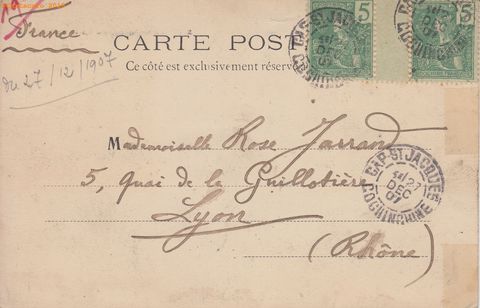 France
du 27/12/1907
CARTE POST
Ce côté est exclusivement réservé
5
5
CAP-ST JACQUES
DEC
07
COCHINCHINE
Mademoiselle Rose Jarrand
5, quai de la Guillotière
Lyon
(Rhône)
CAP-ST JACQUES
27
DEC
07
COCHINCHINE